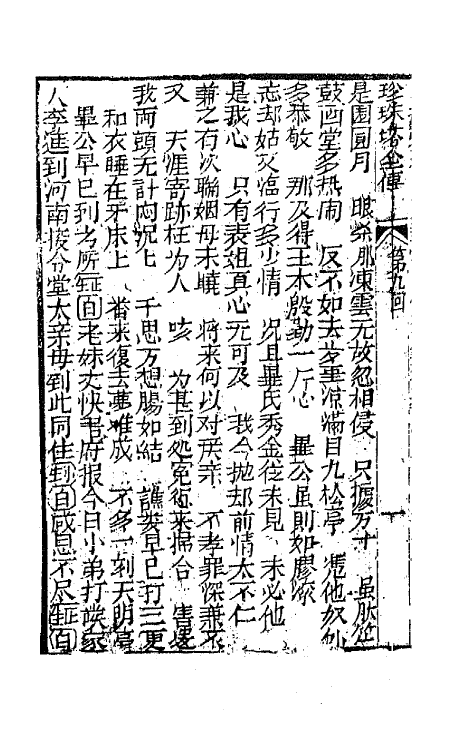 珍珠塔全傳 第九回 一
是團圓月 眼呆那凍雲无故忽相侵 只擾方寸 虽肰笙
鼓画堂多热闹 反不如去歩凄凉滿目九松亭 凴他奴仆
多恭敬 那及得王本殷勤一片心 畢公虽則如膠漆
忘却姑父临行多少情 况且畢氏秀金從未見 未必他
是我心 只有表姐真心无可及 我今抛却前情太不仁
兼之有次聯姻母未曉 将來何以对皃亲 不孝罪深兼不
又 天涯寄跡枉为人 咳 为甚到処冤愆来掃合 害得
我両頭无計悶沉沉 千思万想腸如結 譙楼早已打三更
和衣睡在牙床上 番来復去夢难成 不多一刻天明亮
畢公早已到書所 生白 老妹丈快甩府报今日小弟打发家
人李進到河南接令堂太亲母到此同住 刬白 感恩不尽 生白